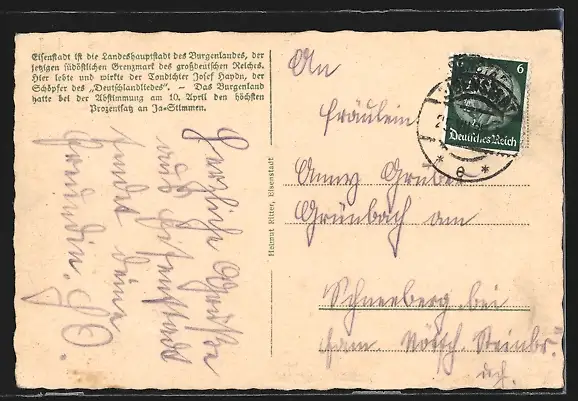 Eisenstadt ist die Landeshauptstadt des Burgenlandes, der
jetzigen südöstlichen Grenzmark des großdeutschen Reichs.
Hier lebte und wirkte der Tondichter Josef Haydn, der
Schöpfer des „Deutschlandliedes“. – Das Burgenland
hatte bei der Abstimmung am 10. April den höchsten
Prozentsatz an Ja-Stimmen.
Herzliche Grüße
aus Eisenstadt
sendet deine
Freundin.
Helmut Ritter, Eisenstadt
6
Deutsches Reich
* e *
An
Fräulein
Anny Gruber
Grünbach am
Schneeberg bei
Fam. Steinbr.